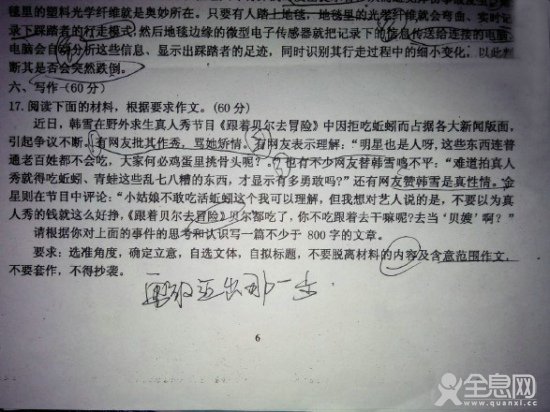 毯里的塑料光学纤维就是奥妙所在。只要有人踏上地毯，地毯里的光学纤维就会弯曲、实时记
录下踩踏者的行走模式，然后地毯边缘的微型电子传感器就把记录下的信息传送给连接的电脑，
电脑会自动分析这些信息、显示出踩踏者的足迹，同时识别其行走过程中的细小变化。以此判
断其是否会突然跌倒。
六、写作（60 分）
17. 阅读下面的材料，根据要求作文。（60 分）
近日，韩雪在野外求生真人秀节目《跟着贝尔去冒险》中因拒吃蚯蚓而占据各大新闻版面，
引起争议不断。有网友批其作秀，骂她矫情，有网友表示理解：“明星也是人呀，这些东西连普
通老百姓都不会吃，大家何必鸡蛋里挑骨头呢？”也有不少网友替韩雪鸣不平：“难道拍真人
秀就得吃蚯蚓、青蛙这些乱七八糟的东西，才显示有多勇敢吗？”还有网友赞韩雪是真性情。金
星则在节目中评论：“小姑娘不敢吃活蚯蚓这个我可以理解，但我想对艺人说的是，不要以为真
人秀的钱就这么好挣，《跟着贝尔去冒险》贝尔都吃了，你不吃跟着去干嘛呢？去当‘贝嫂’啊？”
请根据你对上面的事件的思考和认识写一篇不少于 800 字的文章。
要求：选准角度，确定立意，自选文体，自拟标题，不要脱离材料的内容及含意范围作文，
不要套作，不得抄袭。
出那一步
6
全息网
www.quanxi.cc